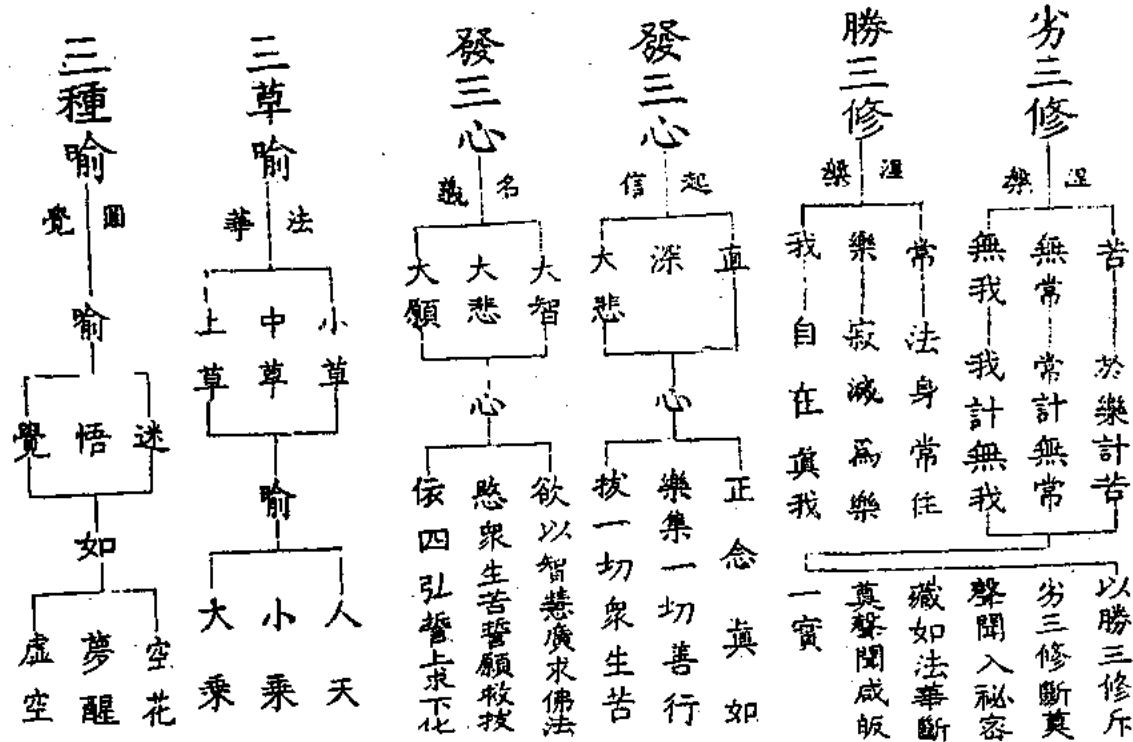 劣三修
涅槃
苦
無常
無我
於樂計苦
常計無常
我計無我
以勝三修斥
劣三修斷奠
聲聞入祕密
藏如法華斷
奠聲聞咸皈
一實
勝三修
涅槃
常
樂
我
法身常住
寂滅為樂
自在眞我
發三心
起信
直
深
大悲
心
正念眞如
樂集一切善行
拔一切衆生苦
發三心
名義
大智
大悲
大願
心
欲以智慧廣求佛法
愍衆生苦誓願救拔
依四弘誓上求下化
三草喻
法華
小草
中草
上草
喻
人天
小乘
大乘
三種喻
圓覺
喻
迷
悟
覺
如
空花
夢醒
虛空